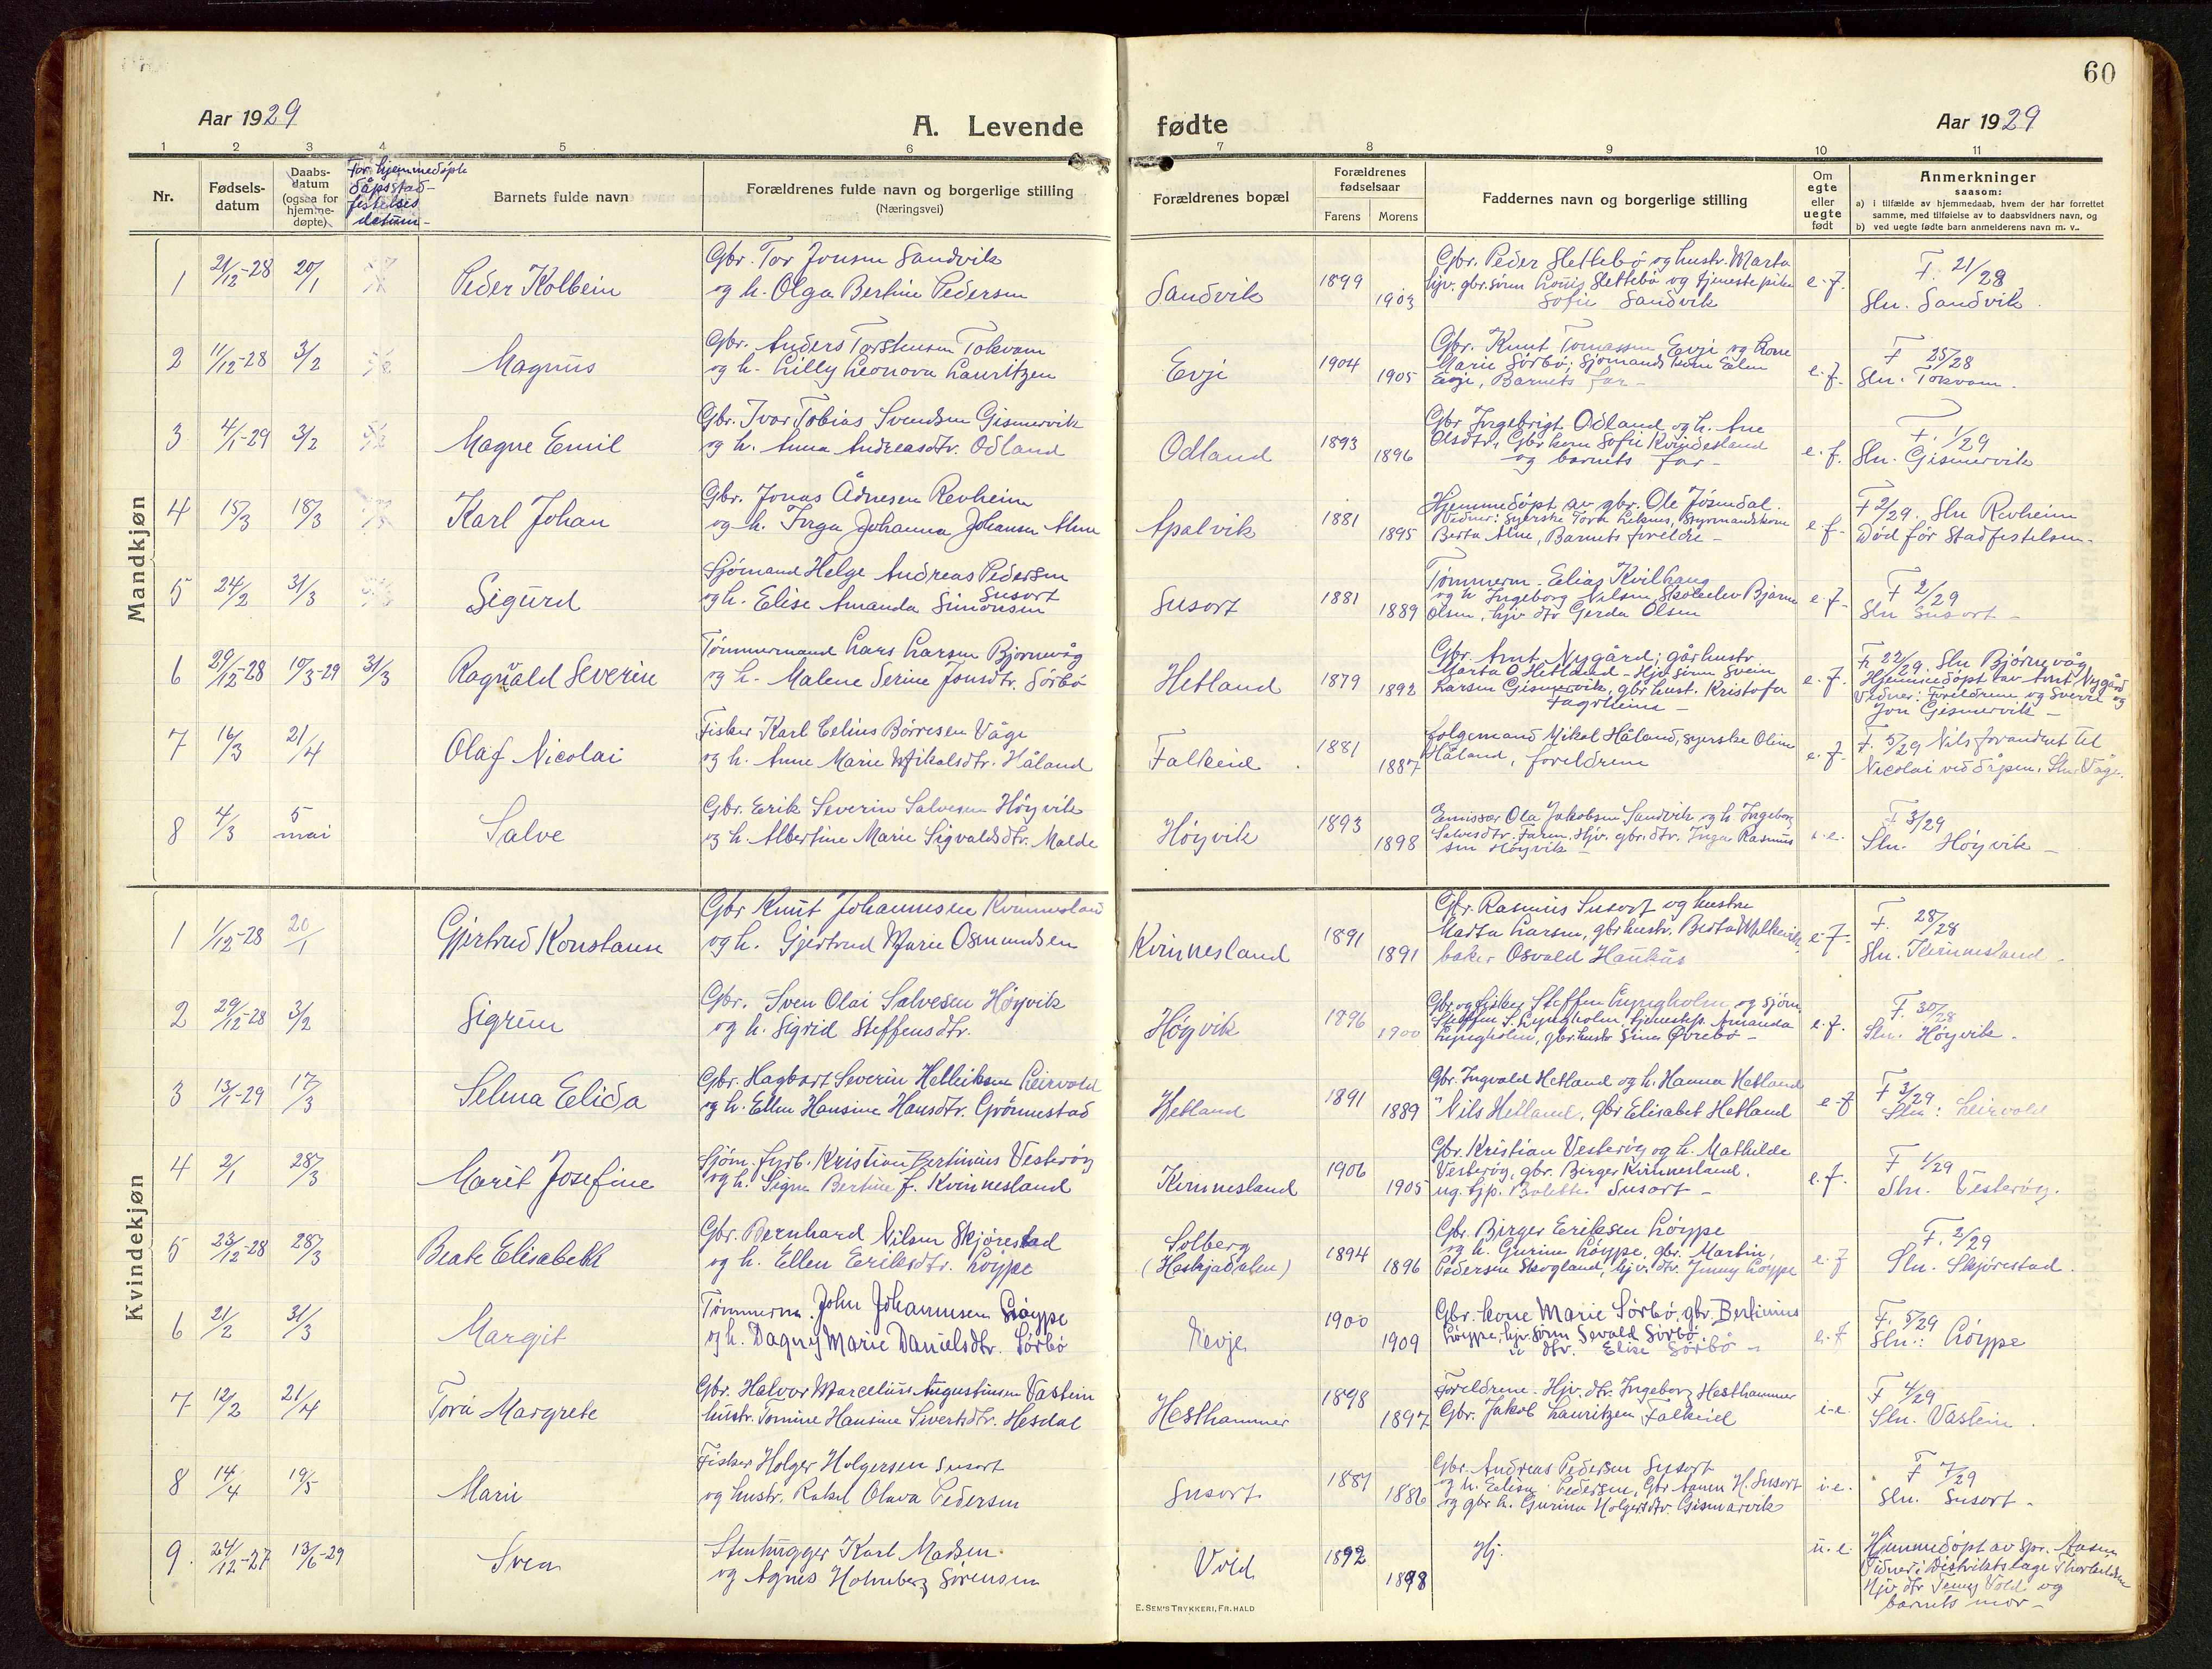 60
Aar 1929
A. Levende
fødte
Aar 1929
1 2 3 4 5 6 7 8 9 10 11
Nr.
Fødsels-
datum
Daabs-
datum
(ogsaa for
hjemme-
døpte)
For hjemmedøpte
dåpsstad-
festelses
datum-
Barnets fulde navn
Forældrenes fulde navn og borgerlige stilling
(Næringsvei)
Forældrenes bopæl
Forældrenes
fødselsaar
Farens
Morens
Faddernes navn og borgerlige stilling
Om
egte
eller
uegte
født
Anmerkninger
saasom:
a) i tilfælde av hjemmedaab, hvem der har forrettet
samme, med tilføielse av to daabsvidners navn, og
b) ved uegte fødte barn anmelderens navn m. v..
Mandkjøn
1 21/12-28 20/1 Peder Kolbein
Gbr. Tor Jonsen Sandvik
og h. Olga Bertine Pedersen
Sandvik 1899 1903
Gbr. Peder Slettebø og hustr. Marta
hjv. gbr. sønn Louis Slettebø og tjenestepike
Sofie Sandvik
e.f.
F. 21/28
Sln. Sandvik.
2 11/12-28 3/2 Magnus
Gbr. Anders Torstensen Tokvam
og h. Lilly Leonova Lauritzen
Evje 1904 1905
Gbr. Knut Tomassen Evje og kone
Marie Sørbø, Sjømands kone Elen
Evje, Barnets far-
e.f.
F 25/28
Sln. Tokvam.
3 4/1-29 3/2 Magne Emil
Gbr. Ivar Tobias Svendsen Gismervik
og h. Anna Andreasdtr. Odland
Odland 1893 1896
Gbr Ingebrigt Odland og h. Ane
Olsdtr, Gbr kone Sofie Kvindesland
og barnets far-
e.f.
F. 1/29
Sln. Gismervik
4 15/3 18/3 Karl Johan
Gbr. Jonas Ådnesen Revheim
og h. Inga Johanna Johansen Alne
Apalvik 1881 1895
Hjemmedøpt av gbr. Ole Jømdal.
Vidner: Syerske Tora Leknes, Styrmandskone
Berta Alne, Barnets foreldre-
e.f.
F 2/29. Sln Revheim
Død før Stadfestelsen-
5 24/2 31/3 Sigurd
Sjømand Helge Andreas Pedersen
Susort
og h. Elise Amanda Simonsen
Susort 1881 1889
Tømmerm. Elias Kvilhaug
og h Ingeborg Nilsen Skoleelev Bjarne
Olsen, hjv dtr Gerda Olsen
e.f.
F 2/29
Sln Susort-
6 29/12-28 10/3-29 31/3 Ragnvald Severin
Tømmermand Lars Larsen Bjørnevåg
og h. Malene Serine Jonsdtr. Sørbø
Hetland 1879 1892
Gbr. Amt Nygård; gårhustr
Marta O Hetland - Hjv sønn Svein
Larsen Gismervik, gbr hust. Kristofa
Fagrheim-
e.f.
F. 22/29. Sln Bjørnevåg
Hjemmedøpt av Amt Nygård
Vidner: Foreldrene og Sverre og
Jon Gismervik-
7 16/3 21/4 Olaf Nicolai
Fisker Karl Celius Børresen Våge
og h. Anne Marie Mikalsdtr. Håland
Falkeid. 1881 1887
Folgemand Mikal Håland, syerske Oline
Håland, foreldrene
e.f.
F. 5/29 Nils forandret til
Nicolai ved dåpen. Sln Våge.
8 4/3 5 mai Salve
Gbr. Erik Severin Salvesen Høyvik
og h. Albertine Marie Sigvaldsdtr. Malde
Høyvik 1893 1898
Emissær Ola Jakobsen Sandvik og h. Ingeborg
Salvesdtr. Faren, Hjv. gbr. dtr. Inga Rasmus
sen Høyvik-
i.e.
F 3/29
Sln. Høyvik-
Kvindekjøn
1 1/12-28 20/1 Gjertrud Konstanse
Gbr Knut Johannesen Kvinnesland
og h. Gjertrud Marie Osmundsen
Kvinnesland 1891 1891
Gbr. Rasmus Susort og hustru
Marta Larsen, gbr hustr. Berta Malkevik
baker Osvald Haukås
e.f.
F. 28/28
Sln. Kvinnesland-
2 29/12-28 3/2 Sigrun
Gbr. Sven Olai Salvesen Høyvik
og h. Sigrid Steffensdtr.
Høyvik 1896 1900
Gbr. og fisker Steffen Lyngholm og sjøm.
Steffen S. Lyngholm, tjenestep. Amanda
Lyngholm, gbr. hustr Sine Øvrebø-
e.f.
F. 30/28
Sln. Høyvik.
3 13/1-29 17/3 Selma Elida
Gbr. Hagbart Severin Helliksen Leirvold
og h. Ellen Hansine Hansdtr. Grønnestad
Hetland 1891 1889
Gbr. Ingvald Hetland og h. Hanna Hetland
" Nils Hetland, Gbr Elisabet Hetland
e.f
F 3/29
Sln: Leirvold
4 2/1 28/3 Marit Josefine
Sjøm. fyrb. Kristian Bertinius Vesterøy
og h. Signe Bertine f. Kvinnesland
Kvinnesland 1906 1905
Gbr. Kristian Vesterøy og h. Mathilde
Vesterøy, gbr. Birger Kvinnesland.
ug. tjp. Bolette Susort-
e.f.
F 1/29
Sln. Vesterøy.
5 23/12-28 28/3 Beate Elisabeth
Gbr. Bernhard Nilsen Skjørestad
og h. Ellen Eriksdtr. Løyppe
Solberg
(Heskjadalen) 1894 1896
Gbr. Birger Eriksen Løyppe
og h. Gurine Løyppe, gbr. Martin,
Pedersen Skogland, hjv. dtr. Jenny Løyppe
e.f
F. 2/29
Sln. Skjørestad.
6 21/2 31/3 Margit
Tømmerm. John Johannesen Løyppe
og h. Dagny Marie Danielsdtr. Sørbø
Evje 1900 1909
Gbr. kone Marie Sørbø, gbr. Bertinius
Løyppe, hjv. sønn Sevald Sørbø
" dtr. Elise Sørbø-
e.f
F. 5/29
Sln: Løyppe
7 12/2 21/4 Tora Margrete
Gbr. Halvor Marcelius Augustinsen Vastein
hustr. Tomine Hansine Sivertsdtr. Hesdal
Hesthammer 1898 1897
Foreldrene. Hjv. dtr. Ingeborg Hesthammer
Gbr. Jakob Lauritzen Falkeid
i.e.
F 4/29
Sln. Vastein.
8 14/4 19/5 Marie
Fisker Holger Holgersen Susort
og hustr. Rakel Olava Pedersen
Susort. 1887 1886
Gbr. Andreas Pedersen Susort
og h. Eelise Pedersen, Gbr. Sønn H. Susort
og gbr h. Gurina Holgersdtr. Gismarvik
i.e.
F 7/29
Sln. Susort-
9. 24/12-27 13/6-29 Svea
Stenhugger Karl Madsen
og Agnes Holmberg Sørensen
Vold 1892 1898
Hj.
u.e.
Hjemmedøpt av Spr. Aasen
Vidner: Distriktslæge Thorkildsen
Hjv. dtr Jenny Vold og
barnets mor-
E. SEM'S TRYKKERI, FR.HALD